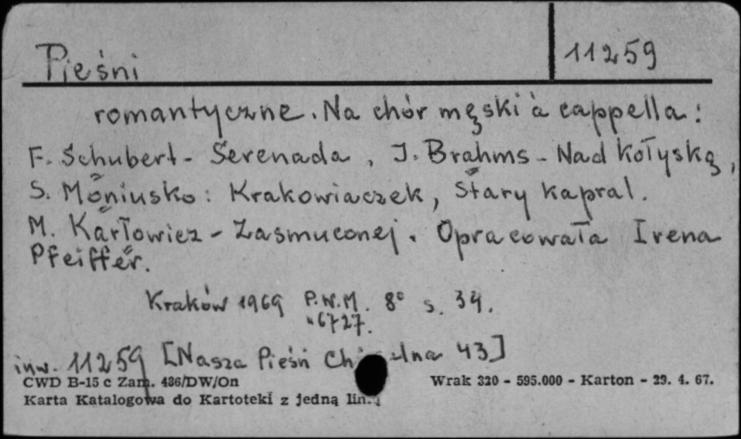 Pieśni
11259
romantyczne. Na chór męski à cappella:
F. Schubert - Serenada, J. Brahms - Nad kołyską,
S. Moniusko: Krakowiaczek, Stary kapral.
M. Karłowicz - Zasmuconej. Opracowała Irena
Pfeiffer.
Kraków 1969 P.W.M. 8° s. 34.
"6727.
inw. 11259 [Nasza Pieśń 43]
CWD B-15 c Zam. 436/DW/On Wrak 320 - 595.000 - Karton - 29. 4. 67.
Karta Katalogowa do Kartoteki z jedną